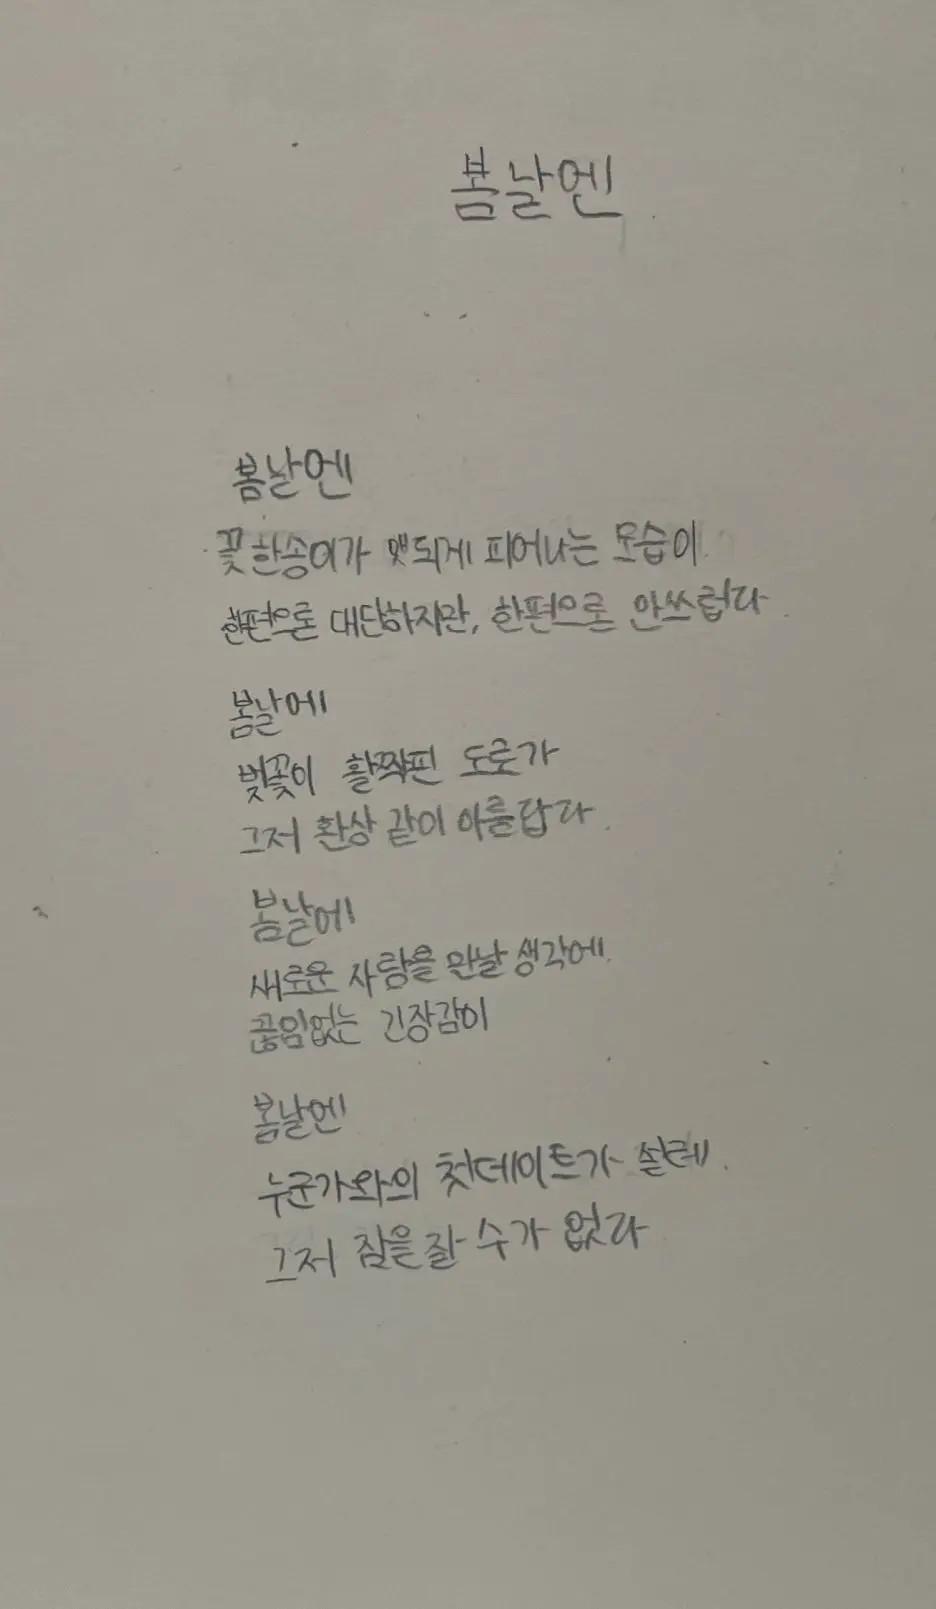 봄날엔
봄날엔
꽃 한송이가 헛되게 피어나는 모습이
한편으론 대단하지만, 한편으론 안쓰럽다
봄날에
벚꽃이 활짝핀 도로가
그저 환상 같이 아름답다.
봄날에
새로운 사람을 만날 생각에
끊임없는 긴장감이
봄날엔
누군가와의 첫데이트가 설레
그저 잠을 잘 수가 없다